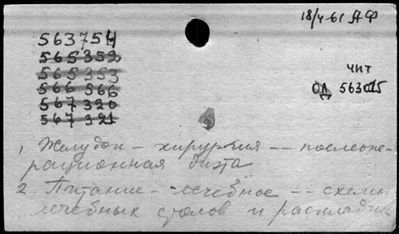 18/4-61 АФ
563754
565352
565353
566566
567320
567321
ЧИТ
ОД 563015
1. Желудок - хирургия -- послеопе-
рационная диэта
2. Питание - лечебное -- схемы
лечебных столов и раскладок